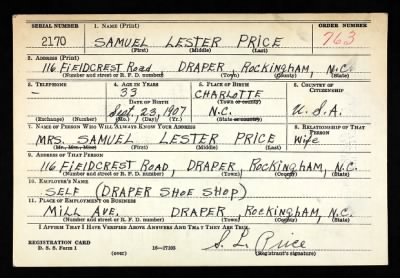 SERIAL NUMBER 1. NAME (Print) ORDER NUMBER
2170 SAMUEL LESTER PRICE 763
(First) (Middle) (Last)
2. ADDRESS (Print)
116 FIELDCREST ROAD DRAPER, ROCKINGHAM, N.C.
(Number and street or R. F. D. number) (Town) (County) (State)
3. TELEPHONE 4. AGE IN YEARS 5. PLACE OF BIRTH 6. COUNTRY OF CITIZENSHIP
- 33 CHARLOTTE
DATE OF BIRTH (Town or county)
Sept. 23, 1907 N.C. U.S.A.
(Exchange) (Number) (Mo.) (Day) (Yr.) (State or country)
7. NAME OF PERSON WHO WILL ALWAYS KNOW YOUR ADDRESS 8. RELATIONSHIP OF THAT PERSON
MRS. SAMUEL LESTER PRICE Wife
(Mr., Mrs., Miss) (First) (Middle) (Last)
9. ADDRESS OF THAT PERSON
116 FIELDCREST ROAD, DRAPER, ROCKINGHAM, N.C.
(Number and street or R. F. D. number) (Town) (County) (State)
10. EMPLOYER'S NAME
SELF (DRAPER SHOE SHOP)
11. PLACE OF EMPLOYMENT OR BUSINESS
MILL AVE. DRAPER, ROCKINGHAM, N.C.
(Number and street or R. F. D. number) (Town) (County) (State)
I AFFIRM THAT I HAVE VERIFIED ABOVE ANSWERS AND THAT THEY ARE TRUE.
REGISTRATION CARD S. L. Price
D. S. S. Form 1 (over) 16-17105 (Registrant's signature)